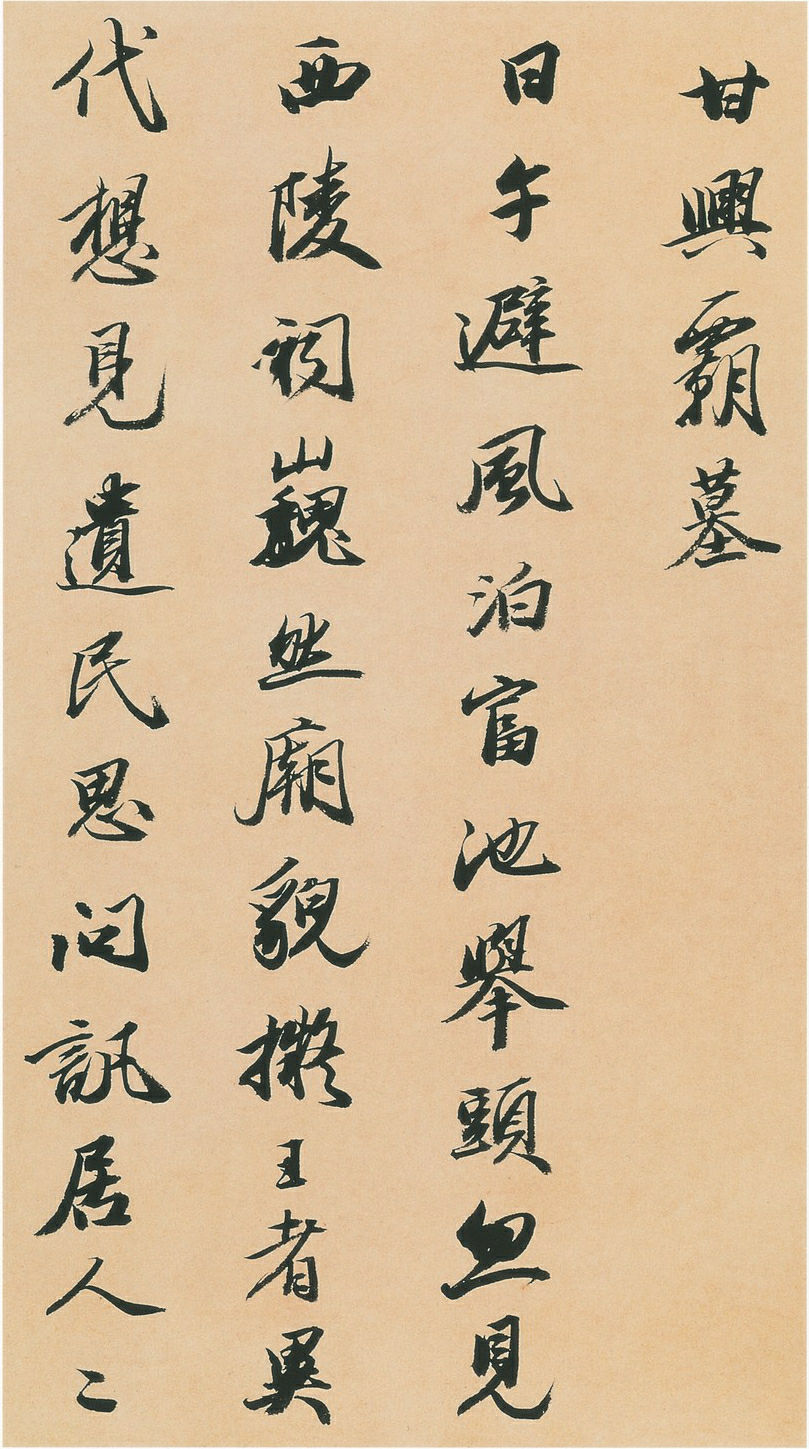 甘興霸墓
日午避風泊富池舉頭忽見
西陵祠巍然廟貌擬王者異
代想見遺民思問訊居人二